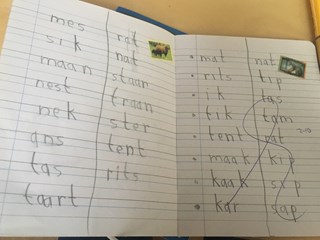 mes
sik
maan
nest
nek
ans
tas
taart
rit
nat
staar
traan
ster
tent
rits
mat
rits
ik
tik
tent
maak
kaak
kar
nat
tip
tas
tam
kip
sip
sap